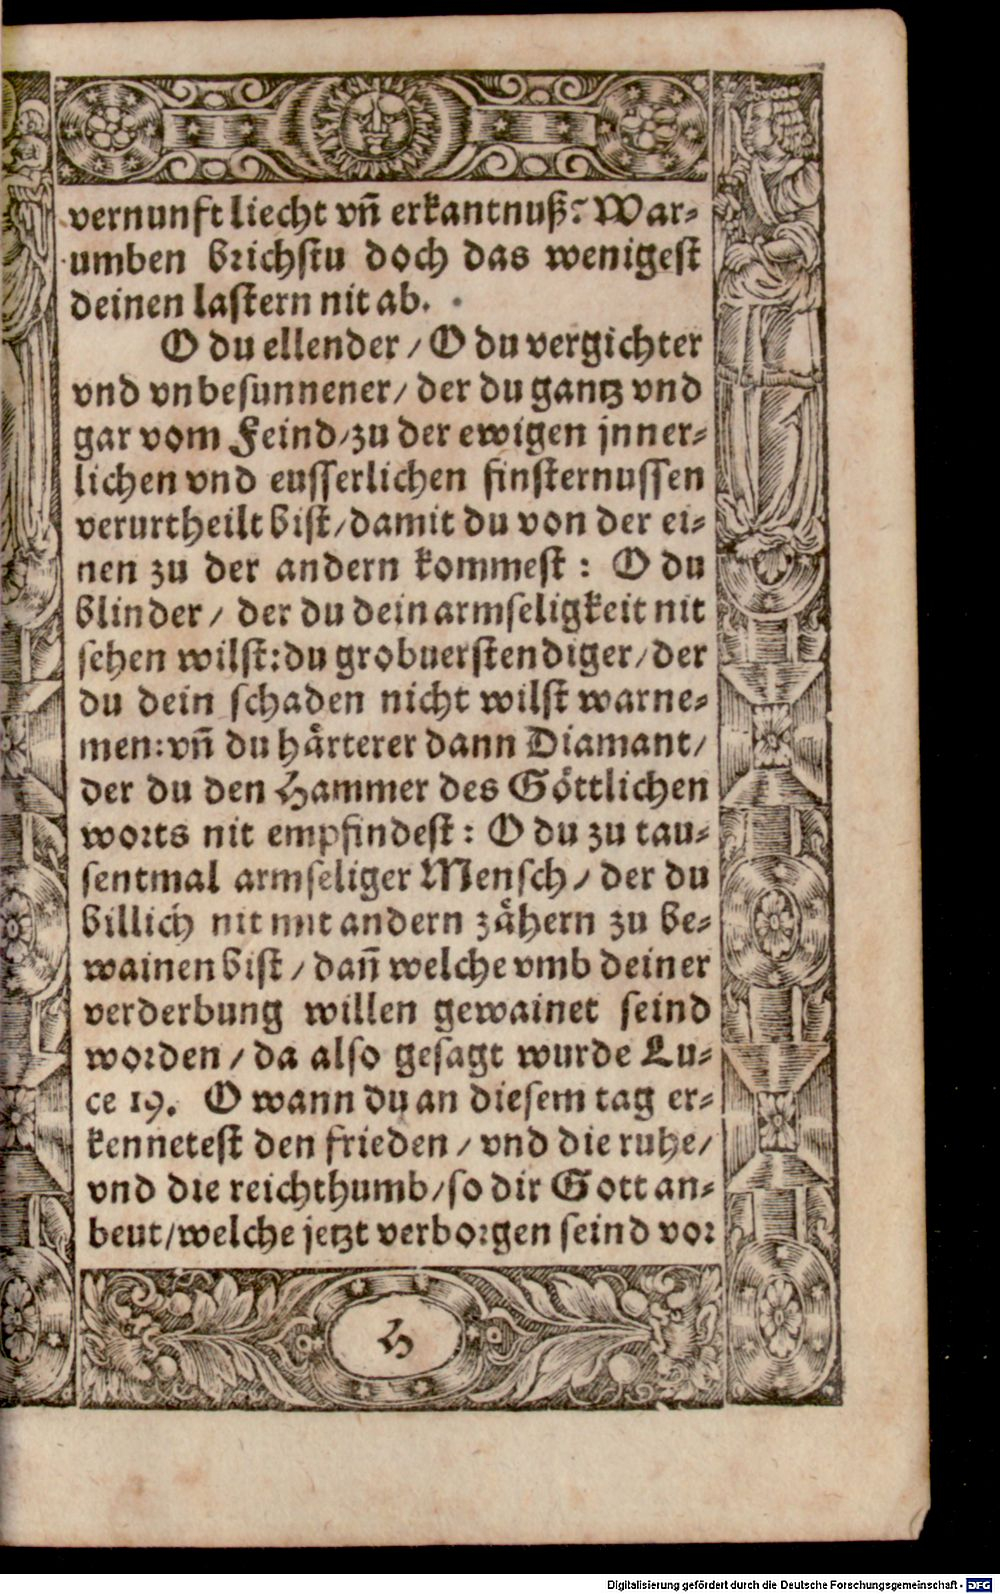 vernunft liecht vñ erkantnuß? War⸗
umben brichstu doch das wenigest
deinen lastern nit ab.
O du ellender / O du vergichter
vnd vnbesunnener / der du gantz vnd
gar vom Feind / zu der ewigen jnner⸗
lichen vnd eusserlichen finsternussen
verurtheilt bist / damit du von der ei⸗
nen zu der andern kommest : O du
blinder / der du dein armseligkeit nit
sehen wilst : du grobuerstendiger / der
du dein schaden nicht wilst warne⸗
men : vñ du härterer dann Diamant /
der du den Hammer des Göttlichen
worts nit empfindest : O du zu tau⸗
sentmal armseliger Mensch / der du
billich nit mit andern zähern zu be⸗
wainen bist / dañ welche vmb deiner
verderbung willen gewainet seind
worden / da also gesagt wurde Lu⸗
ce 19. O wann du an diesem tag er⸗
kennetest den frieden / vnd die ruhe /
vnd die reichthumb / so dir Gott an⸗
beut / welche jetzt verborgen seind vor
H
Digitalisierung gefördert durch die Deutsche Forschungsgemeinschaft - DFG